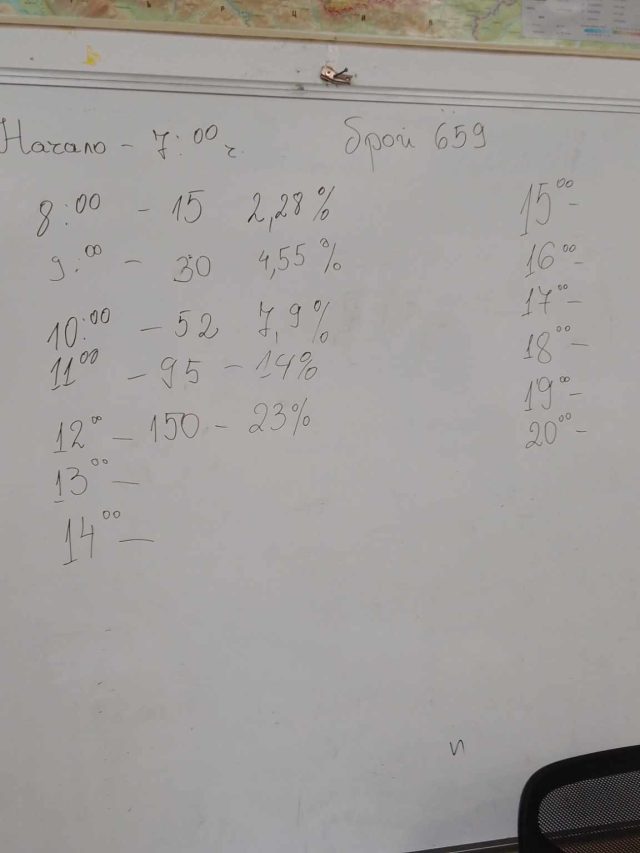 Начало - 7:00 г. Брой 659
8:00 - 15 2,28%
9:00 - 30 4,55%
10:00 - 52 7,9%
11 00 - 95 - 14%
12 00 - 150 - 23%
13 00 -
14 00 -
15 00 -
16 00 -
17 00 -
18 00 -
19 00 -
20 00 -
и